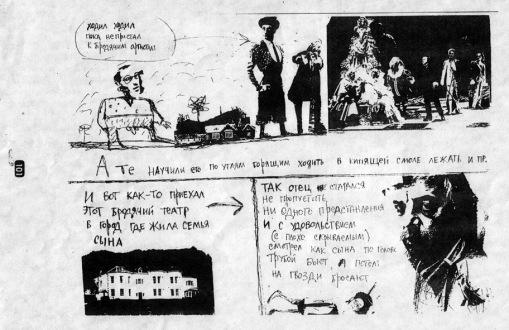 ходил ходил
пока не пристал
к бродячим артистам
А те научили его по углям горящим ходить в кипящей смоле лежать и пр.
101
И вот как-то приехал
этот бродячий театр
в город где жила семья
сына
Так отец не старался
не пропустить
ни одного представления
И с удовольствием
(с плохо скрываемым)
смотрел как сына по голове
трубой бьют, а потом
на гвозди бросают